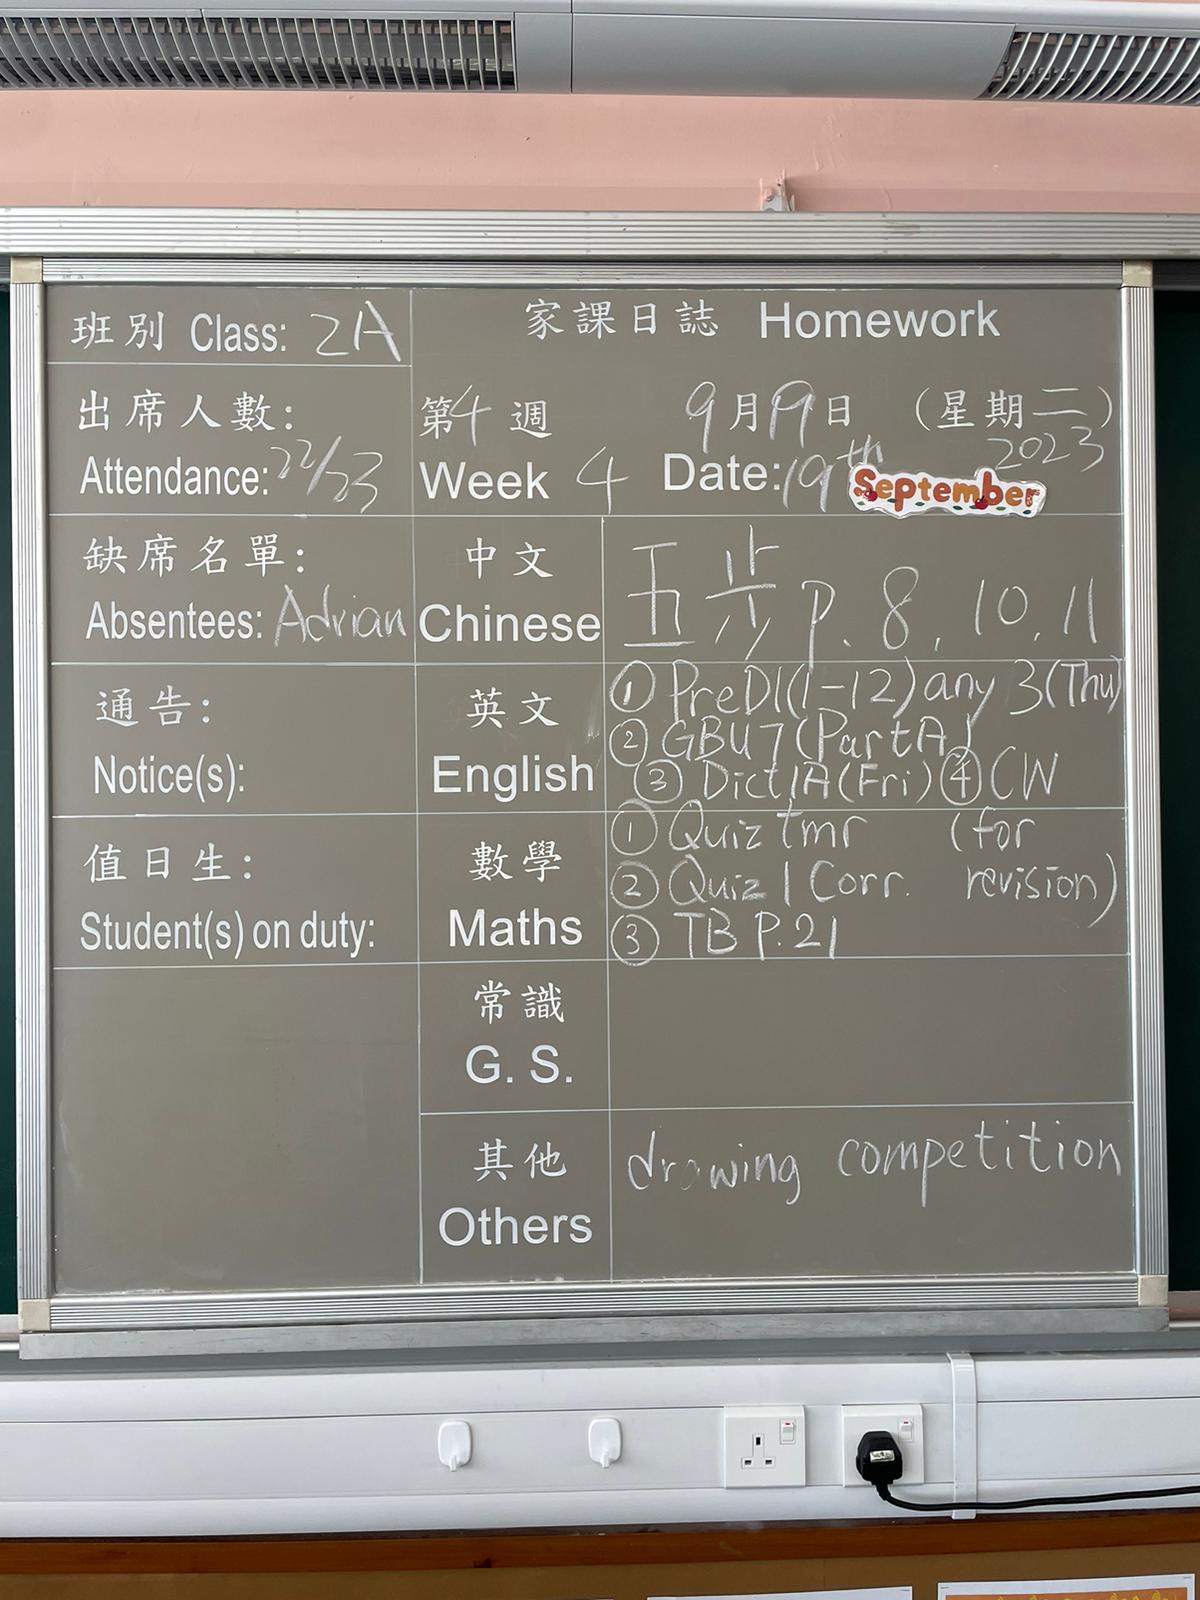 班別 Class: 2A
家課日誌 Homework
出席人數:
Attendance: 22/23
第4週
Week 4
9月19日 (星期二)
Date: 19th September 2023
缺席名單:
Absentees: Adrian
中文
Chinese
五步 p. 8, 10, 11
通告:
Notice(s):
英文
English
① PreD1(1-12) any 3 (Thu)
② GBU7 (Part A)
③ Dict1A (Fri) ④ CW
值日生:
Student(s) on duty:
數學
Maths
① Quiz tmr (for
② Quiz 1 Corr. revision)
③ TB P.21
常識
G. S.
其他
Others
drawing competition